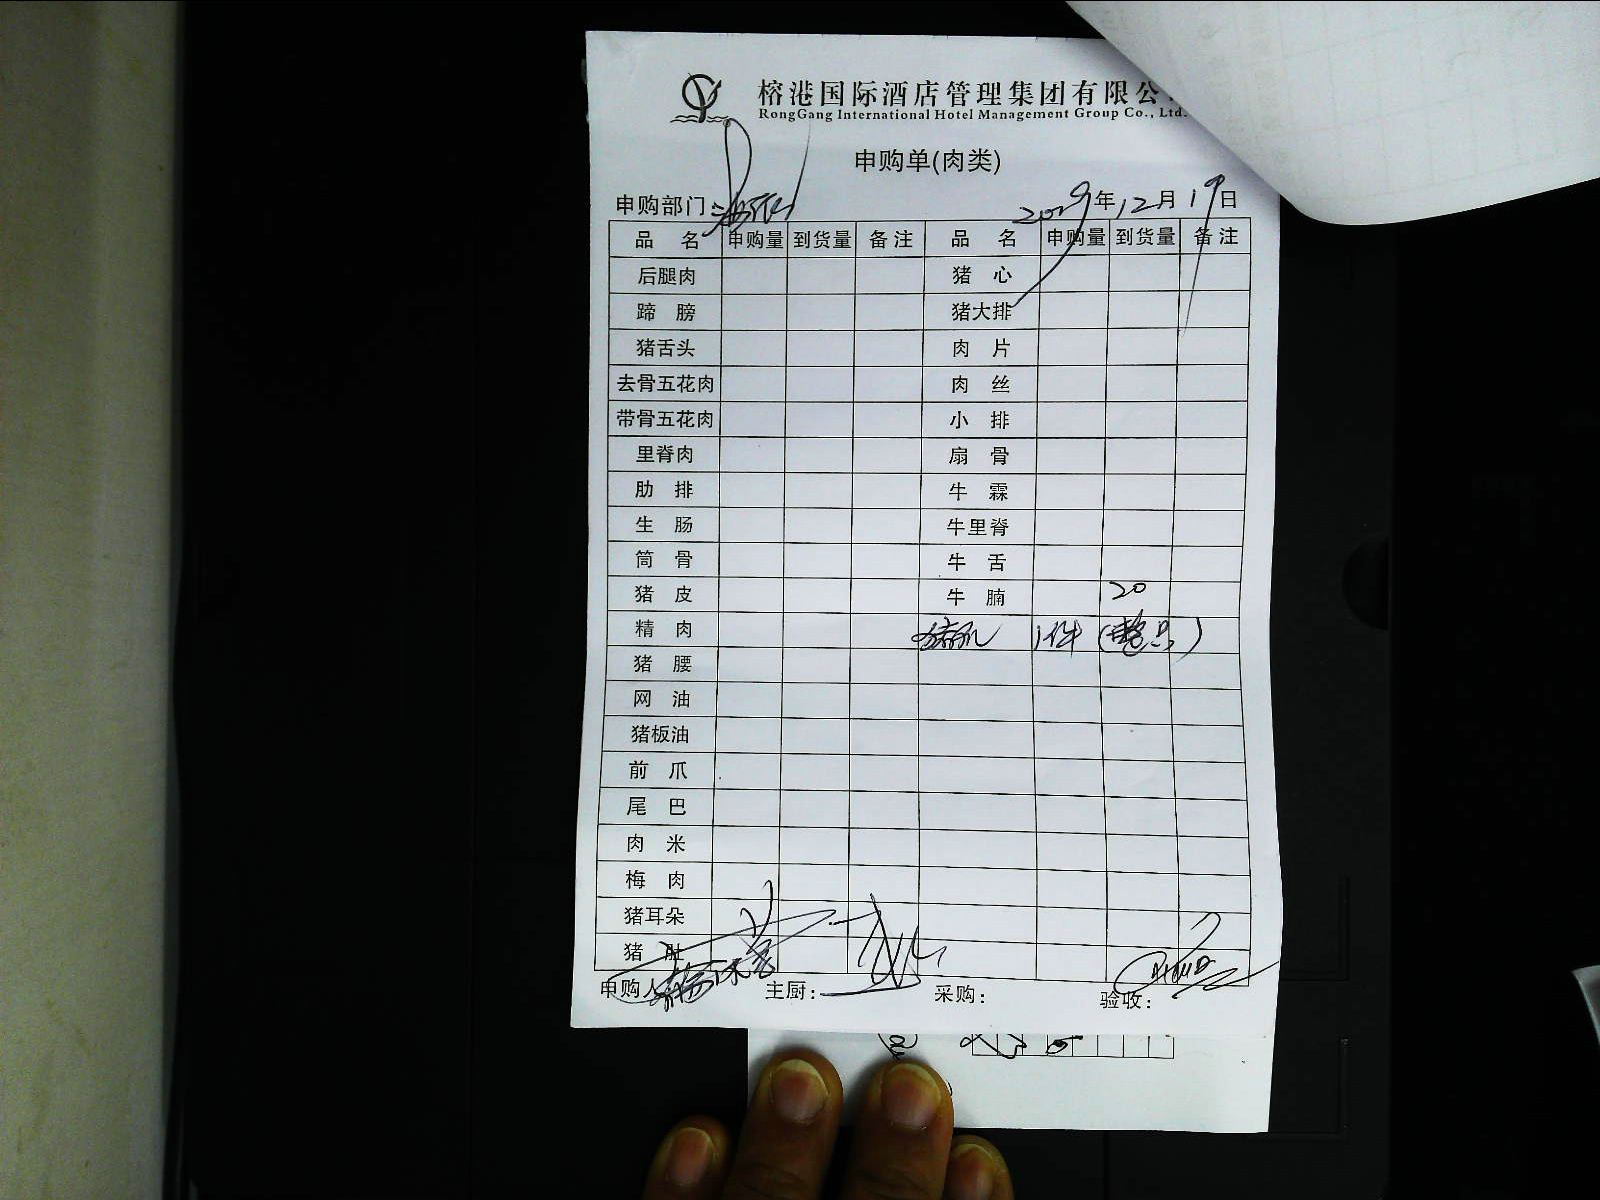 榕港国际酒店管理集团有限公
RongGang International Hotel Management Group Co., Ltd.
申购单(肉类)
申购部门: 2019年12月19日
品 名 申购量 到货量 备注 品 名 申购量 到货量 备注
后腿肉 猪 心
蹄 膀 猪大排
猪舌头 肉 片
去骨五花肉 肉 丝
带骨五花肉 小 排
里脊肉 扇 骨
肋 排 牛 霖
生 肠 牛里脊
筒 骨 牛 舌
猪 皮 牛 腩 20
精 肉 1件
猪 腰
网 油
猪板油
前 爪
尾 巴
肉 米
梅 肉
猪耳朵
猪 肚
申购人 主厨: 采购: 验收: